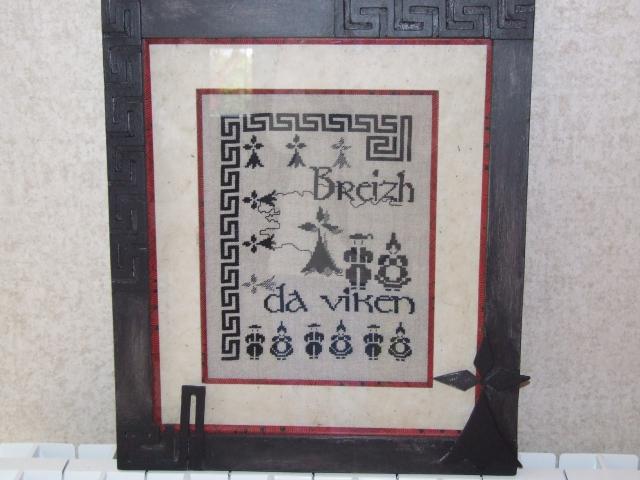 Breizh
da viken